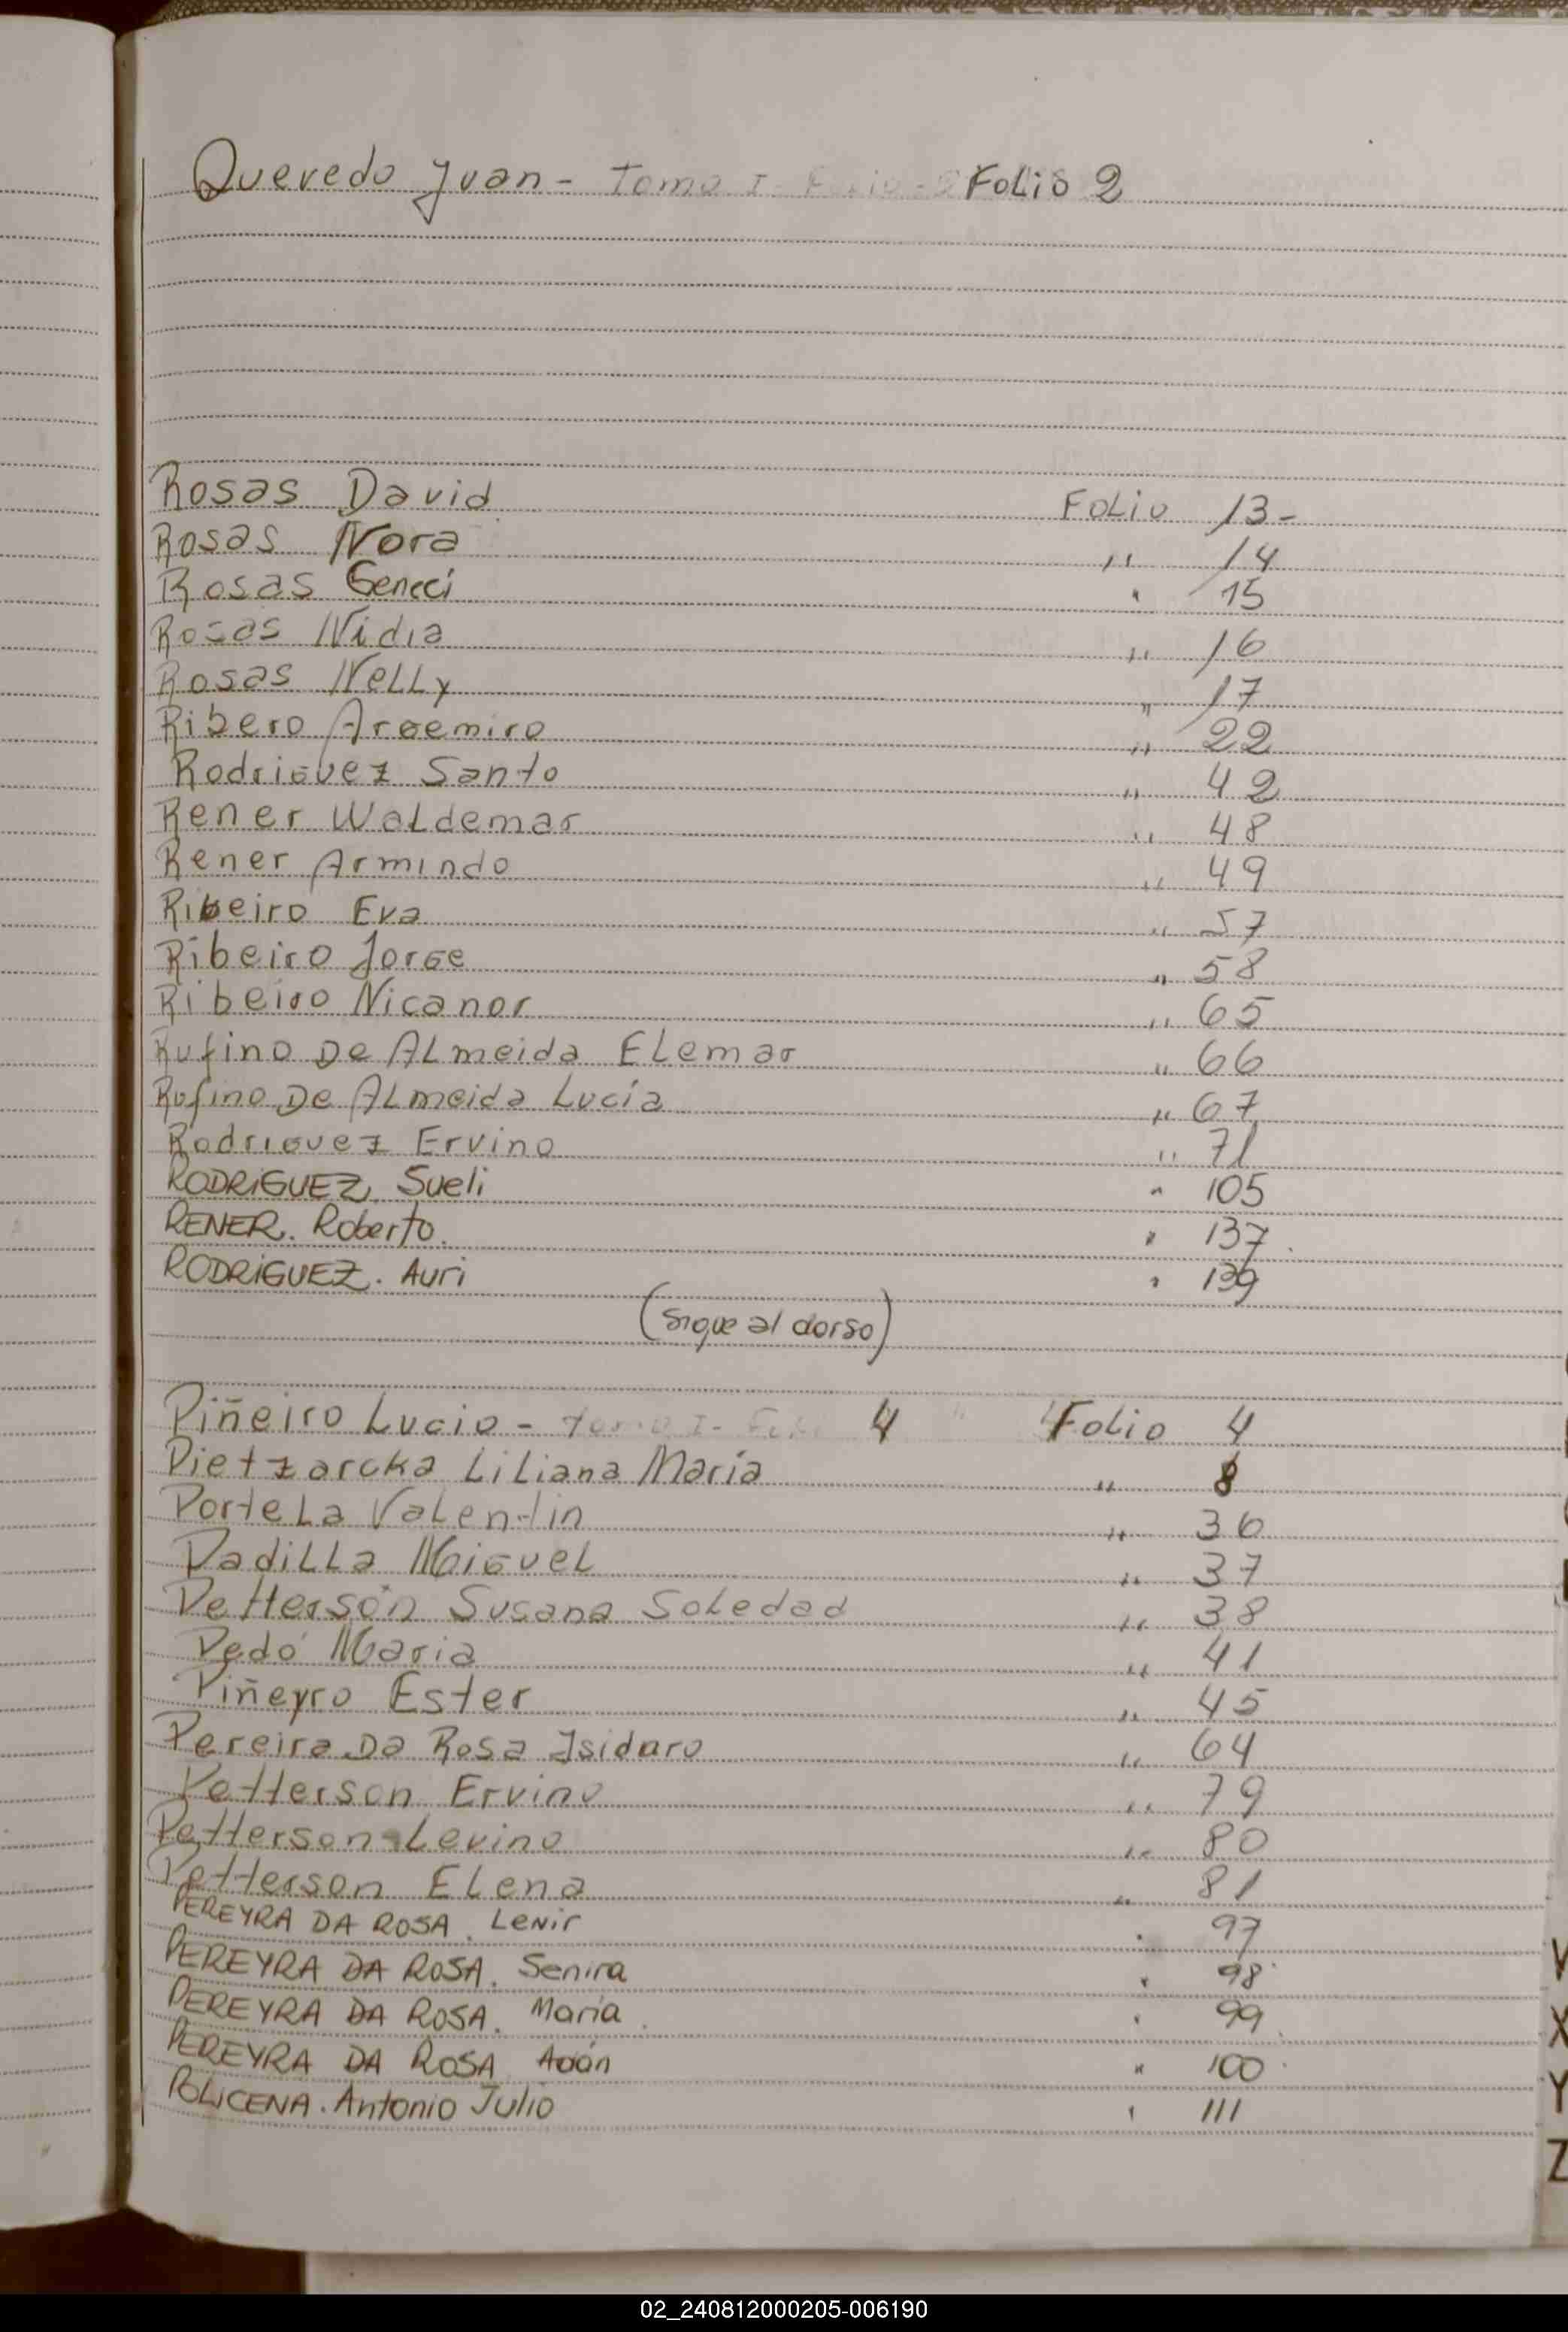 Quevedo Juan - Tomo I - Folio - 2 Folio 2
Rosas David Folio 13 -
Rosas Nora " 14
Rosas Geneci " 15
Rosas Nidia " 16
Rosas Nelly " 17
Ribero Argemiro " 22
Rodriguez Santo " 42
Rener Waldemar " 48
Rener Armindo " 49
Ribeiro Eva " 57
Ribeiro Jorge " 58
Ribeiro Nicanor " 65
Rufino De Almeida Elemar " 66
Rufino De Almeida Lucía " 67
Rodriguez Ervino " 71
RODRIGUEZ. Sueli " 105
RENER. Roberto. " 137.
RODRIGUEZ. Auri " 139
(Sigue al dorso)
Piñeiro Lucio - Tomo I - Folio 4 Folio 4
Pietzarcka Liliana María " 8
Portela Valentin " 36
Padilla Miguel " 37
Petterson Susana Soledad " 38
Pedó Maria " 41
Piñeyro Ester " 45
Pereira Da Rosa Isidoro " 64
Petterson Ervino " 79
Petterson Levino " 80
Petterson Elena " 81
PEREYRA DA ROSA. Lenir " 97
PEREYRA DA ROSA. Senira " 98
PEREYRA DA ROSA. María. " 99.
PEREYRA DA ROSA. Adán " 100.
POLICENA. Antonio Julio " 111
V
X
Y
Z
02_240812000205-006190